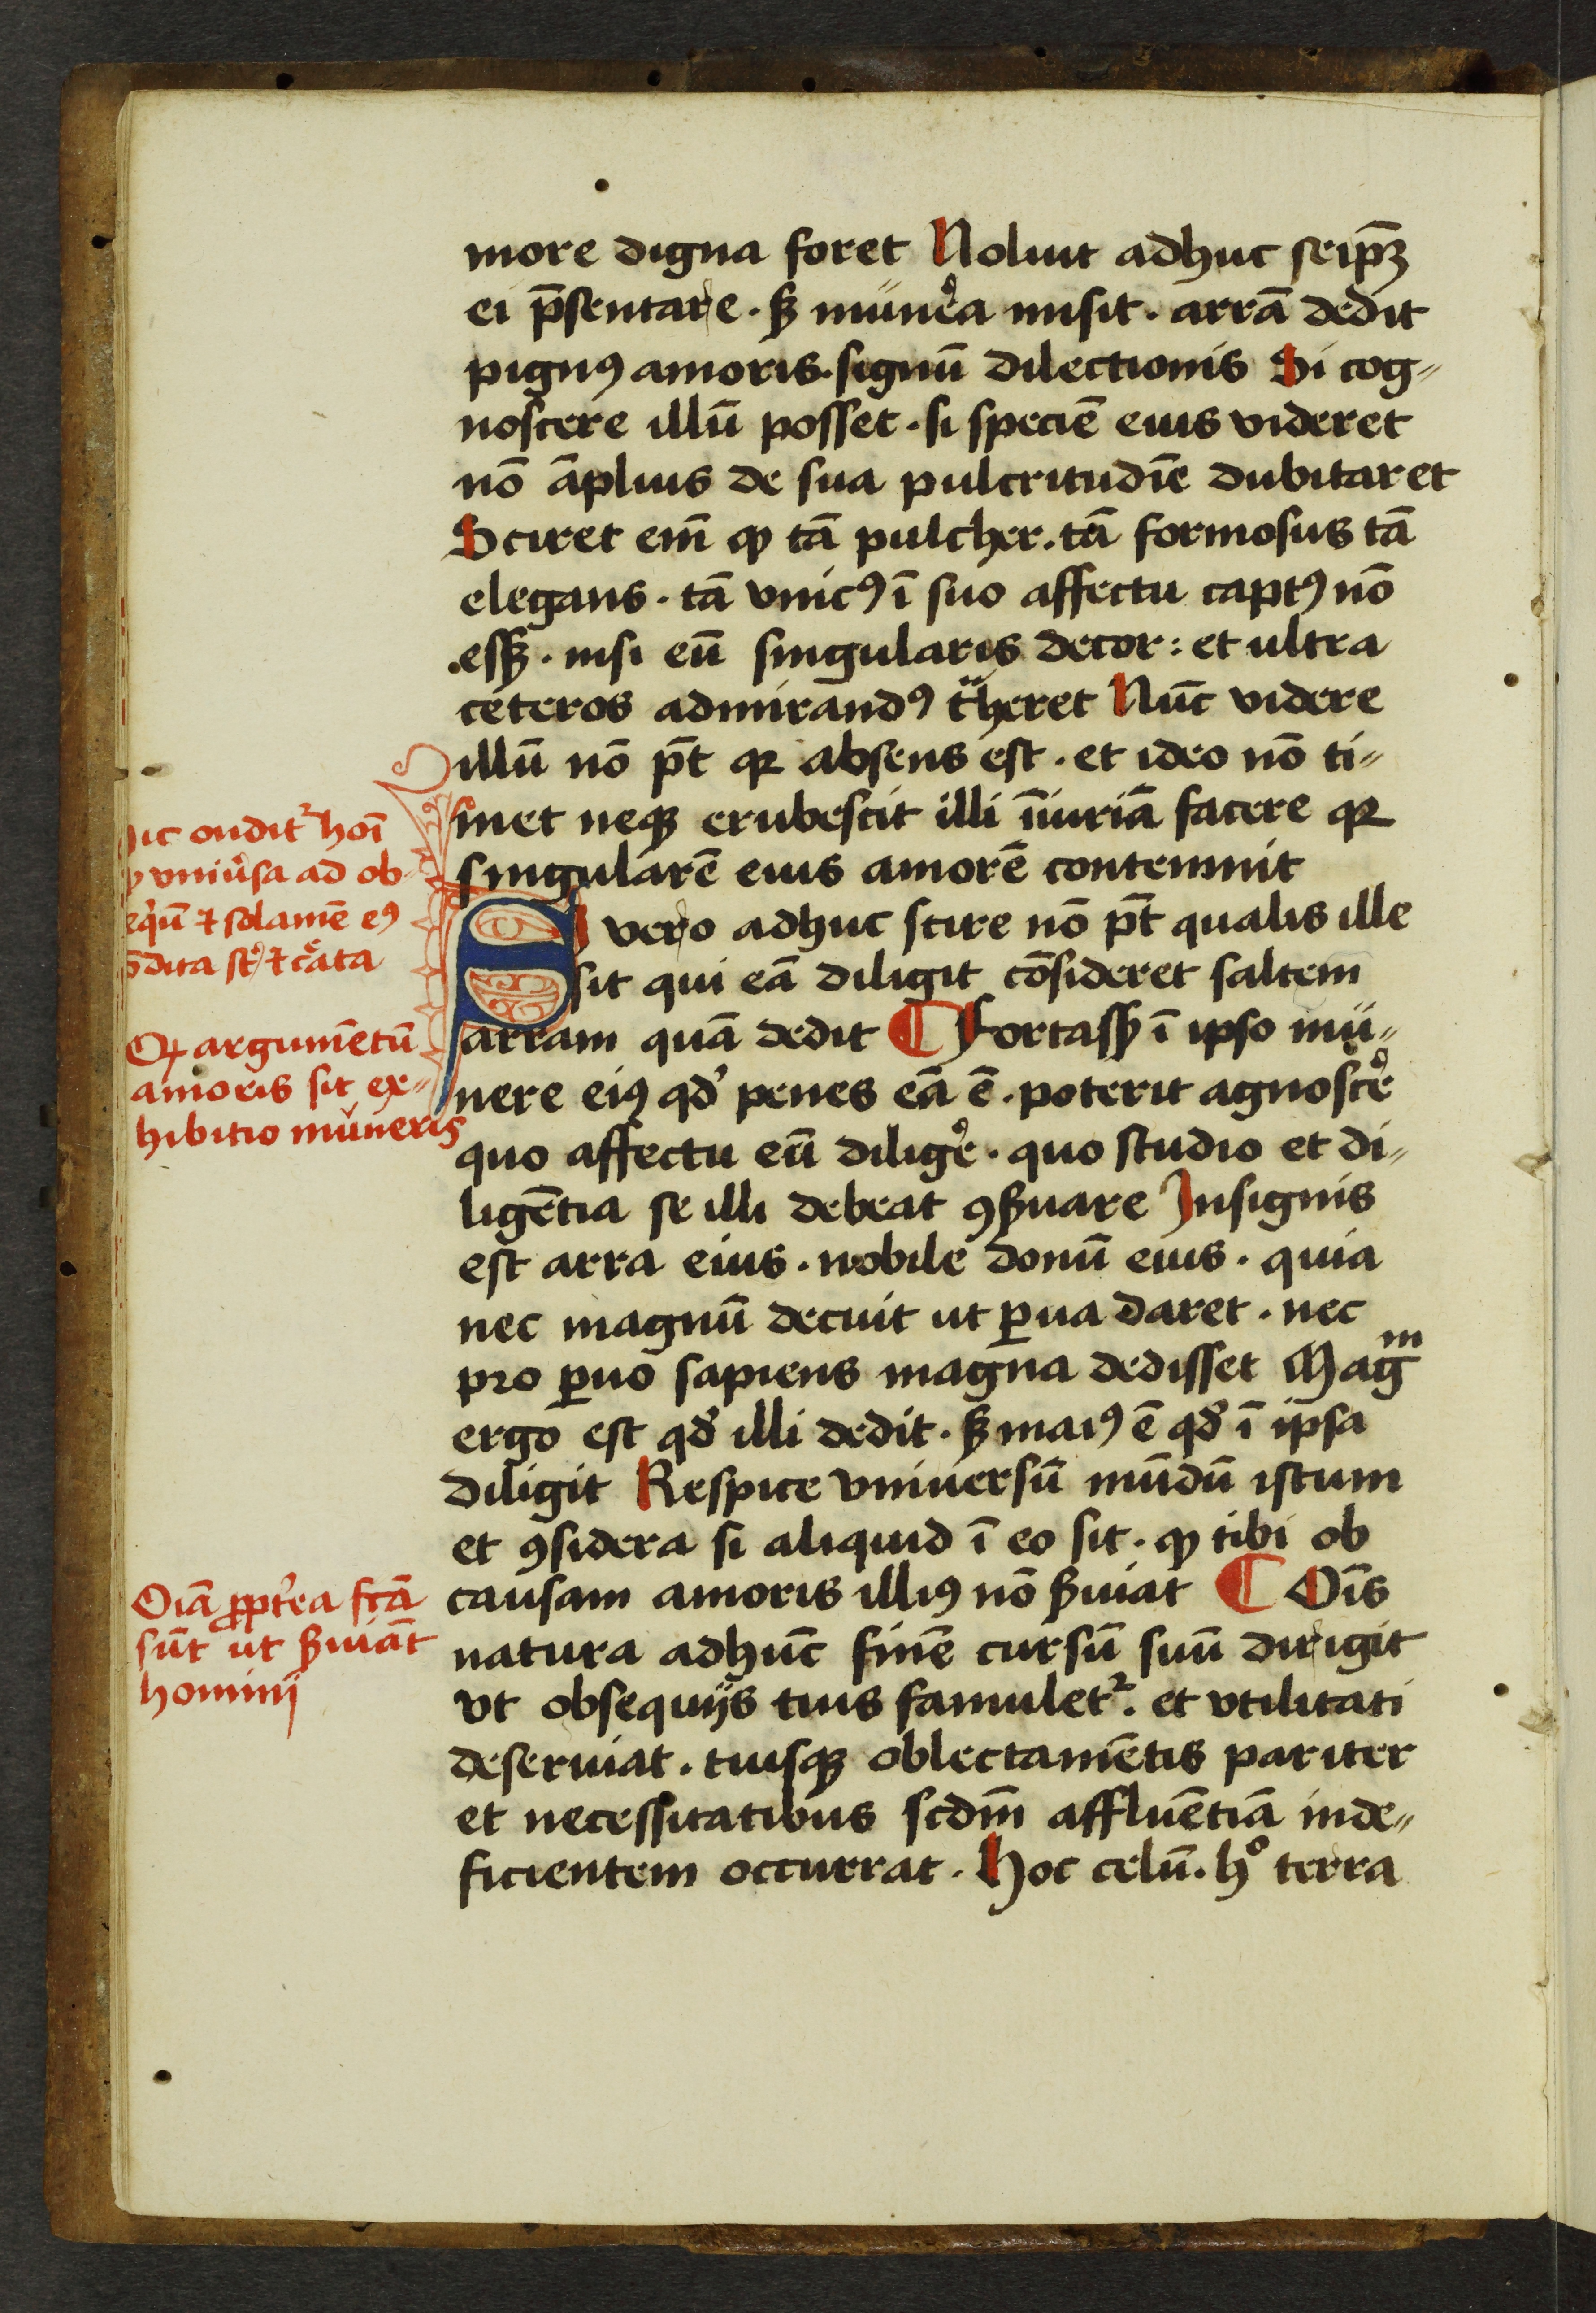 more digna foret Noluit adhuc seip̄ꝫ
ei p̄sentare. sꝫ munera misit. arrā dedit
pignꝰ amoris. signū dilectionis Si cog=
noscere illū posset. si speciē eius videret
nō āplius de sua pulcritudīe dubitaret
Sciret em̄ ꝙ tā pulcher. tā formosus tā
elegans. tā vnicꝰ ī suo affectu captꝰ nō
essꝫ. nisi eū singularis decor: et ultra
ceteros admirandꝰ t̄heret Nūc videre
illū nō pt̄ qꝛ absens est. et ideo nō ti=
met neqꝫ erubescit illi īiuriā facere qꝛ
singularē eius amorē contemnit
Si vero adhuc scire nō pt̄ qualis ille
sit qui eā diligit cōsideret saltem
arram quā dedit ¶ Fortassꝫ ī ipso mu=
nere eiꝰ qd̛ penes eā ē. poterit agnoscere
quo affectu eū diligere. quo studio et di=
ligētia se illi debeat ꝯẜuare Insignis
est arra eius. nobile donū eius. quia
nec magnū decuit ut ꝑua daret. nec
pro ꝑuo sapiens magna dedisset Magᵐ
ergo est qd̛ illi dedit. sꝫ maiꝰ ē qd̛ ī ipsa
diligit Respice vniuersū mūdū istum
et ꝯsidera si aliquid ī eo sit. ꝙ tibi ob
causam amoris illiꝰ nō ẜuiat ¶ Oīs
natura adhūc finē cursū suū dirigit
vt obsequijs tuis famuletᷣ. et vtilitati
deseruiat. tuisqꝫ oblectamētis pariter
et necessitatibus scdm̄ affluētiā inde=
ficientem occurrat. Hoc celū. hͦ terra
ic ondit᷑ hoī
vniu̓sa ad ob
equū ⁊ solamē eꝰ
dita st̄ ⁊ c̓ata
Qꝛ argumētū
amoris sit ex=
hibitio muneris
Oīa ꝓpt̓ea fc̄a
sūt ut ẜuiāt
hominj